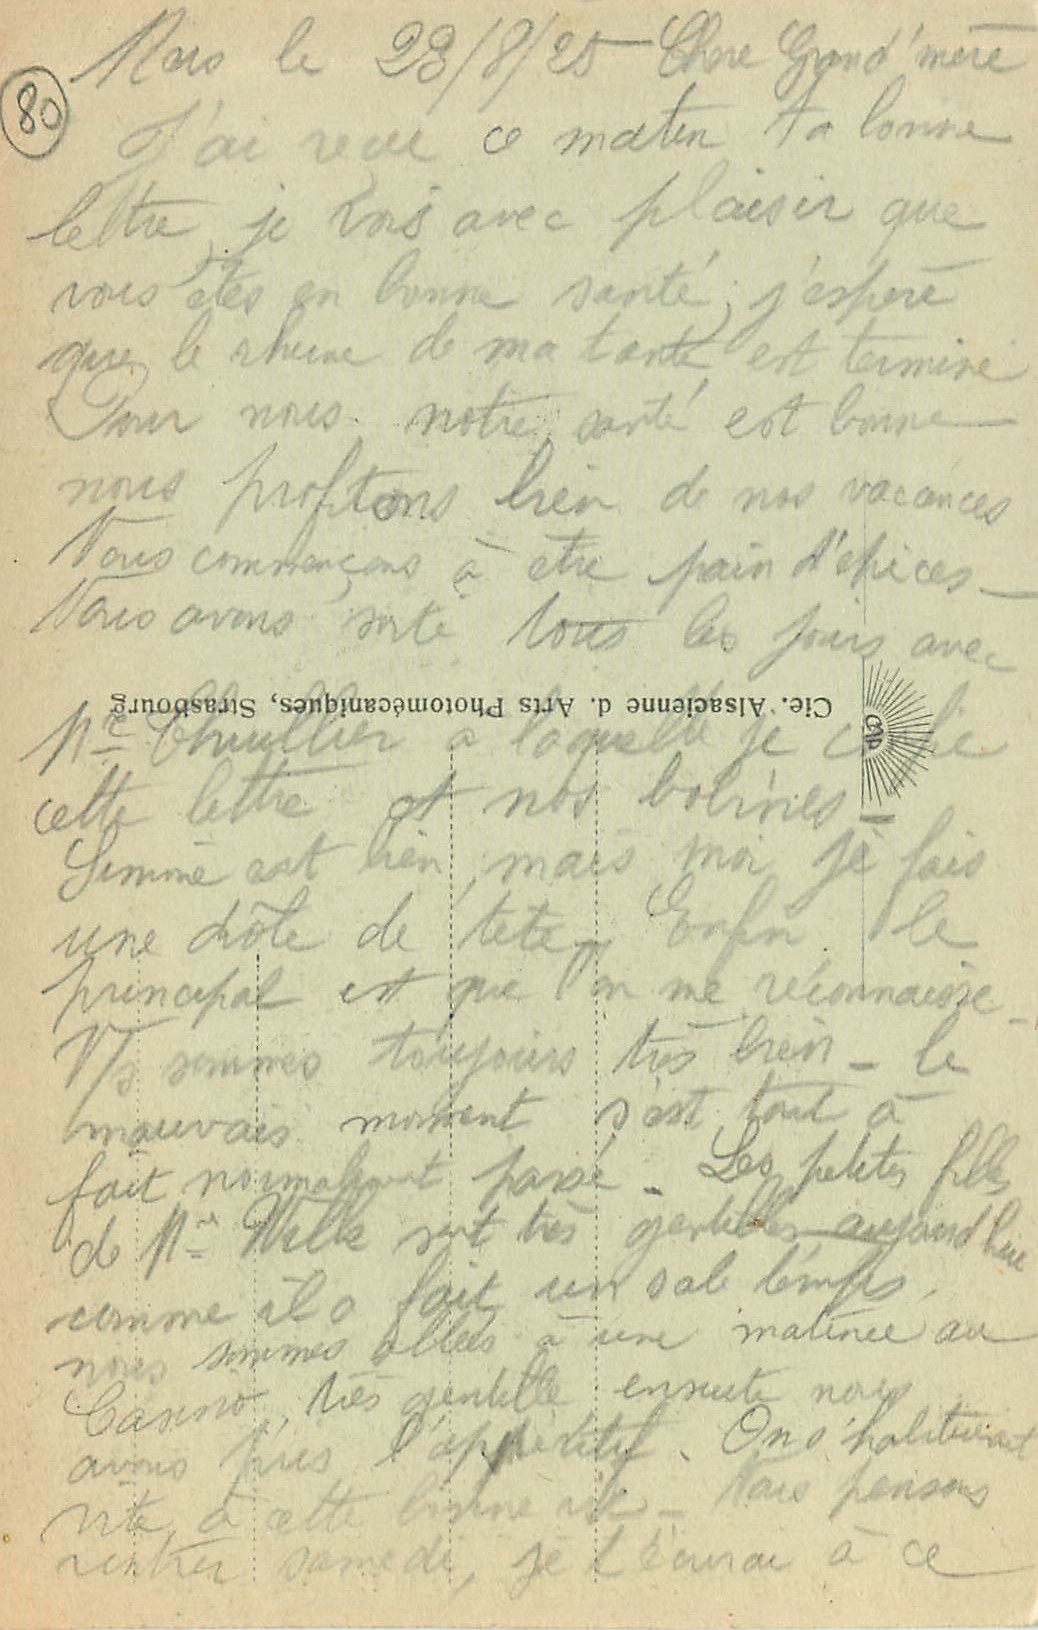 80
le 23/8/25 Chere Grand'mere
J'ai reçu ce matin ta bonne
lettre, je vois avec plaisir que
vous êtes en bonne santé, j'espere
que le rhume de ma tante est terminé
Pour nous notre santé est bonne
nous profitons bien de nos vacances
Nous commençons à etre pain d'epices —
Nous avons sorti tous les jours avec
Cie. Alsacienne d. Arts Photomécaniques, Strasbourg
CAP
Mme Thuillier a laquelle je
cette lettre et nos bobines —
Simone est bien, mais moi je fais
une drôle de tete, Enfin le
principal est que l'on me reconnaisse —
N/s sommes toujours très bien — le
mauvais moment s'est tout à
fait normalement passé — Les petites filles
de Mme sont très gentilles — aujourd'hui
comme il a fait un sale temps,
nous sommes allées à une matinée au
Casino, très gentille ensuite nous
avons pris l'apperitif. On s'habituerait
vite à cette bonne vie — Nous pensons
rentrer samedi, je t'écrirai à ce